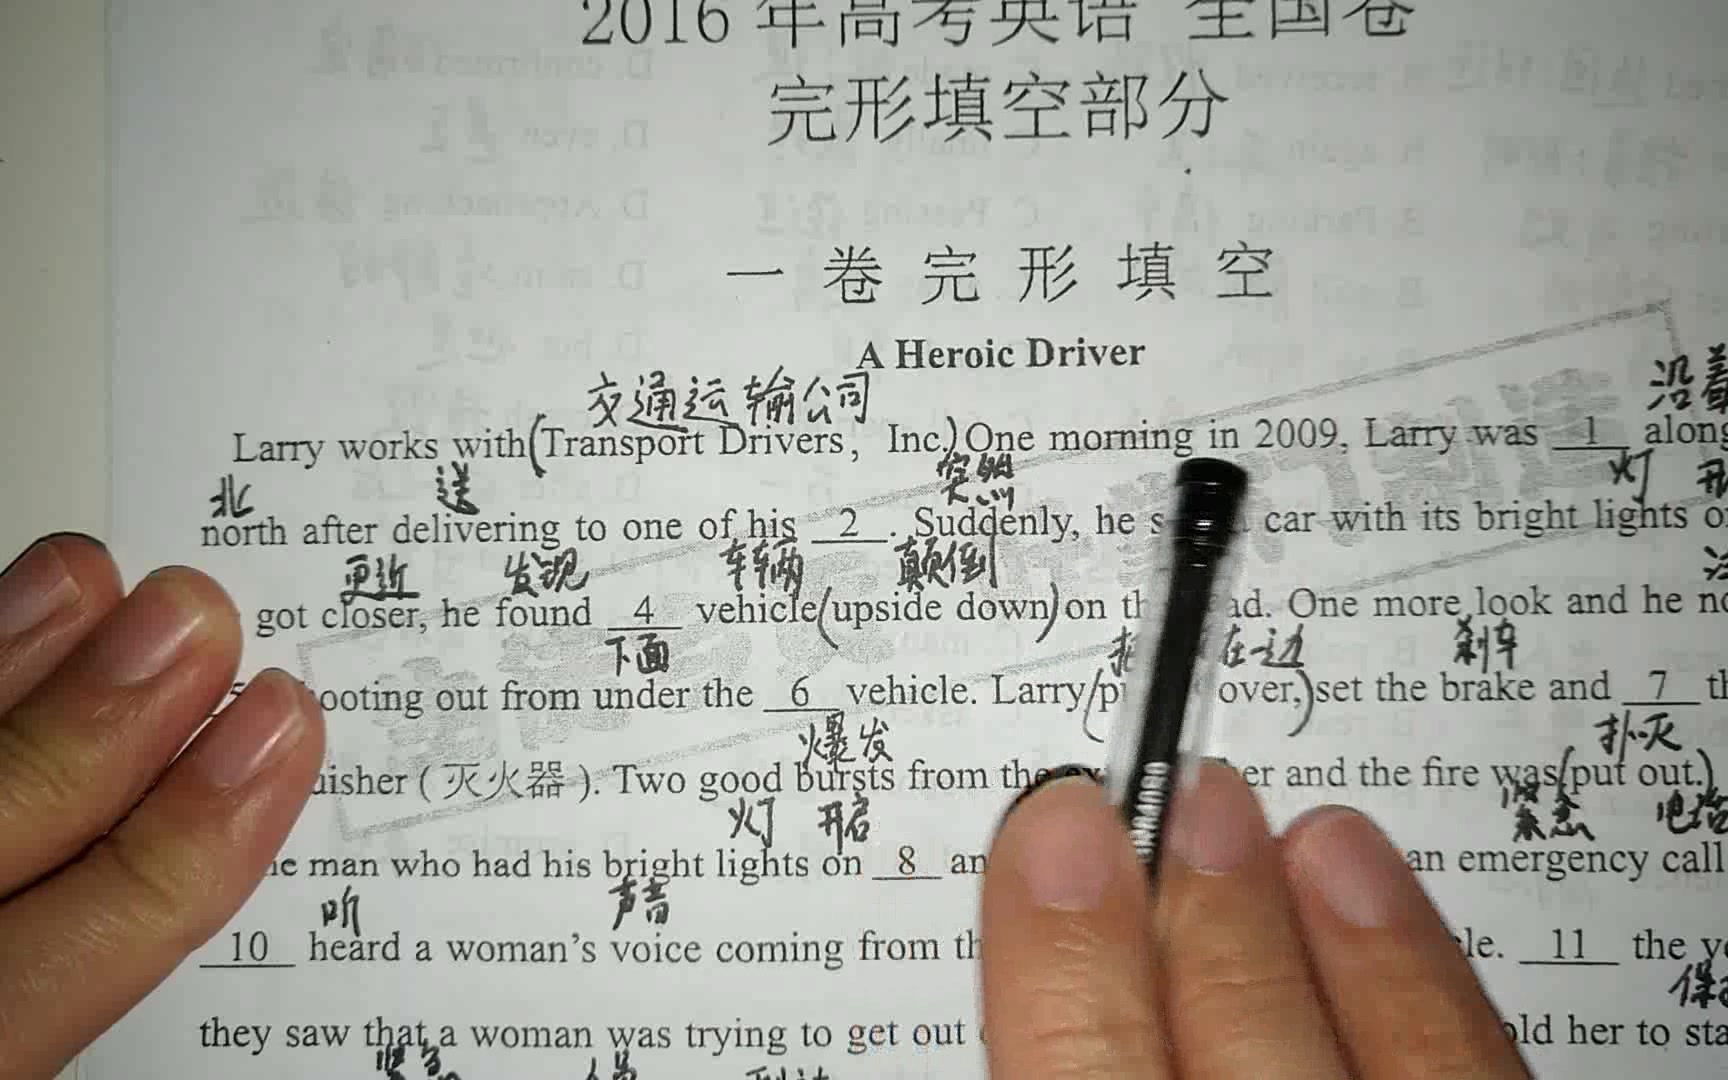 2016 年高考英语 全国卷
完形填空部分
一 卷 完 形 填 空
A Heroic Driver
交通运输公司 沿着
Larry works with(Transport Drivers, Inc.)One morning in 2009, Larry was 1 along
北 送 突然 灯
north after delivering to one of his 2 . Suddenly, he car with its bright lights
更近 发现 车辆 颠倒
got closer, he found 4 vehicle(upside down)on ad. One more look and he
下面 在一边 刹车
ooting out from under the 6 vehicle. Larry over,)set the brake and 7
爆发 扑灭
uisher (灭火器). Two good bursts from the er and the fire was(put out.)
灯 开启 紧急
man who had his bright lights on 8 an emergency call
听 声音
10 heard a woman's voice coming from 11 the
they saw that a woman was trying to get out old her to